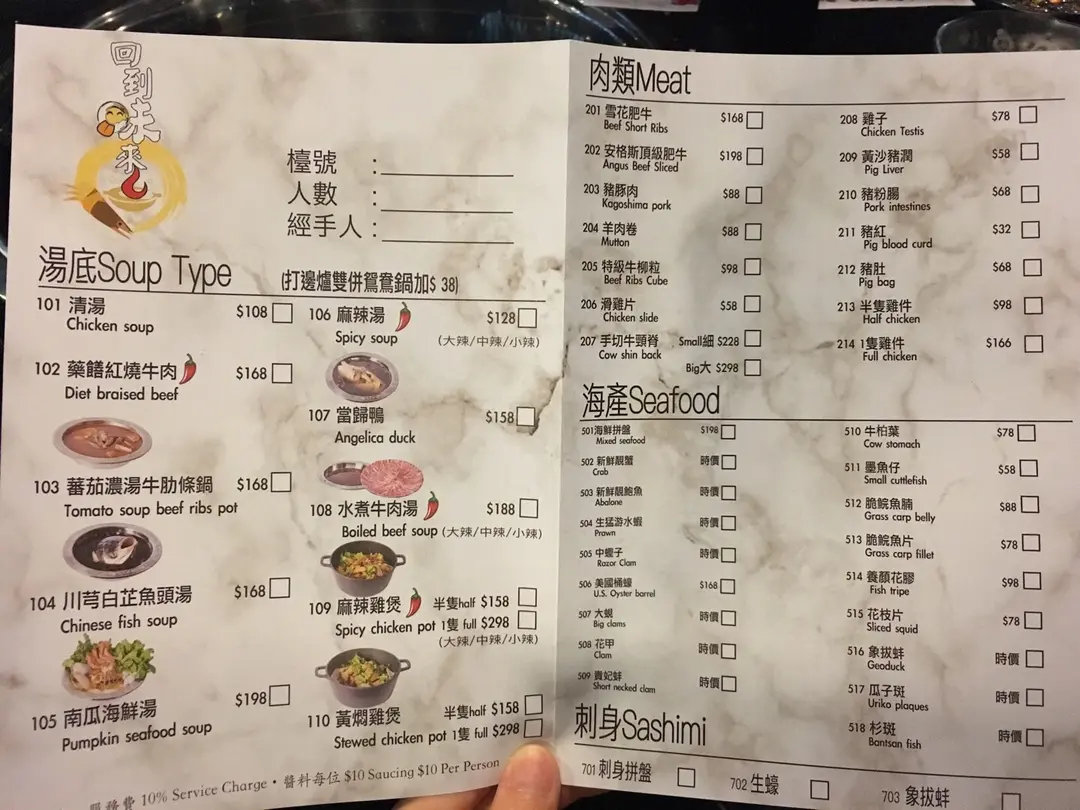 回到未來
檯號 :
人數 :
經手人 :
湯底Soup Type (打邊爐雙併鴛鴦鍋加$ 38)
101 清湯 $108
Chicken soup
102 藥膳紅燒牛肉 $168
Diet braised beef
103 蕃茄濃湯牛肋條鍋 $168
Tomato soup beef ribs pot
104 川芎白芷魚頭湯 $168
Chinese fish soup
105 南瓜海鮮湯 $198
Pumpkin seafood soup
106 麻辣湯 $128
Spicy soup (大辣/中辣/小辣)
107 當歸鴨 $158
Angelica duck
108 水煮牛肉湯 $188
Boiled beef soup (大辣/中辣/小辣)
109 麻辣雞煲 半隻half $158
Spicy chicken pot 1隻 full $298
(大辣/中辣/小辣)
110 黃燜雞煲 半隻half $158
Stewed chicken pot 1隻 full $298
服務費 10% Service Charge • 醬料每位 $10 Saucing $10 Per Person
肉類Meat
201 雪花肥牛 $168
Beef Short Ribs
202 安格斯頂級肥牛 $198
Angus Beef Sliced
203 豬豚肉 $88
Kagoshima pork
204 羊肉卷 $88
Mutton
205 特級牛柳粒 $98
Beef Ribs Cube
206 滑雞片 $58
Chicken slide
207 手切牛頸脊 Small細 $228
Cow shin back
Big大 $298
208 雞子 $78
Chicken Testis
209 黃沙豬潤 $58
Pig Liver
210 豬粉腸 $68
Pork intestines
211 豬紅 $32
Pig blood curd
212 豬肚 $68
Pig bag
213 半隻雞件 $98
Half chicken
214 1隻雞件 $166
Full chicken
海產Seafood
501海鮮拼盤 $198
Mixed seafood
502 新鮮靚蟹 時價
Crab
503 新鮮靚鮑魚 時價
Abalone
504 生猛游水蝦 時價
Prawn
505 中蟶子 時價
Razor Clam
506 美國桶蠔 $168
U.S. Oyster barrel
507 大蜆 時價
Big clams
508 花甲 時價
Clam
509 貴妃蚌 時價
Short necked clam
510 牛柏葉 $78
Cow stomach
511 墨魚仔 $58
Small cuttlefish
512 脆鯇魚腩 $88
Grass carp belly
513 脆鯇魚片 $78
Grass carp fillet
514 養顏花膠 $98
Fish tripe
515 花枝片 $78
Sliced squid
516 象拔蚌 時價
Geoduck
517 瓜子斑 時價
Uriko plaques
518 杉斑 時價
Bantsan fish
刺身Sashimi
701刺身拼盤
702 生蠔
703 象拔蚌